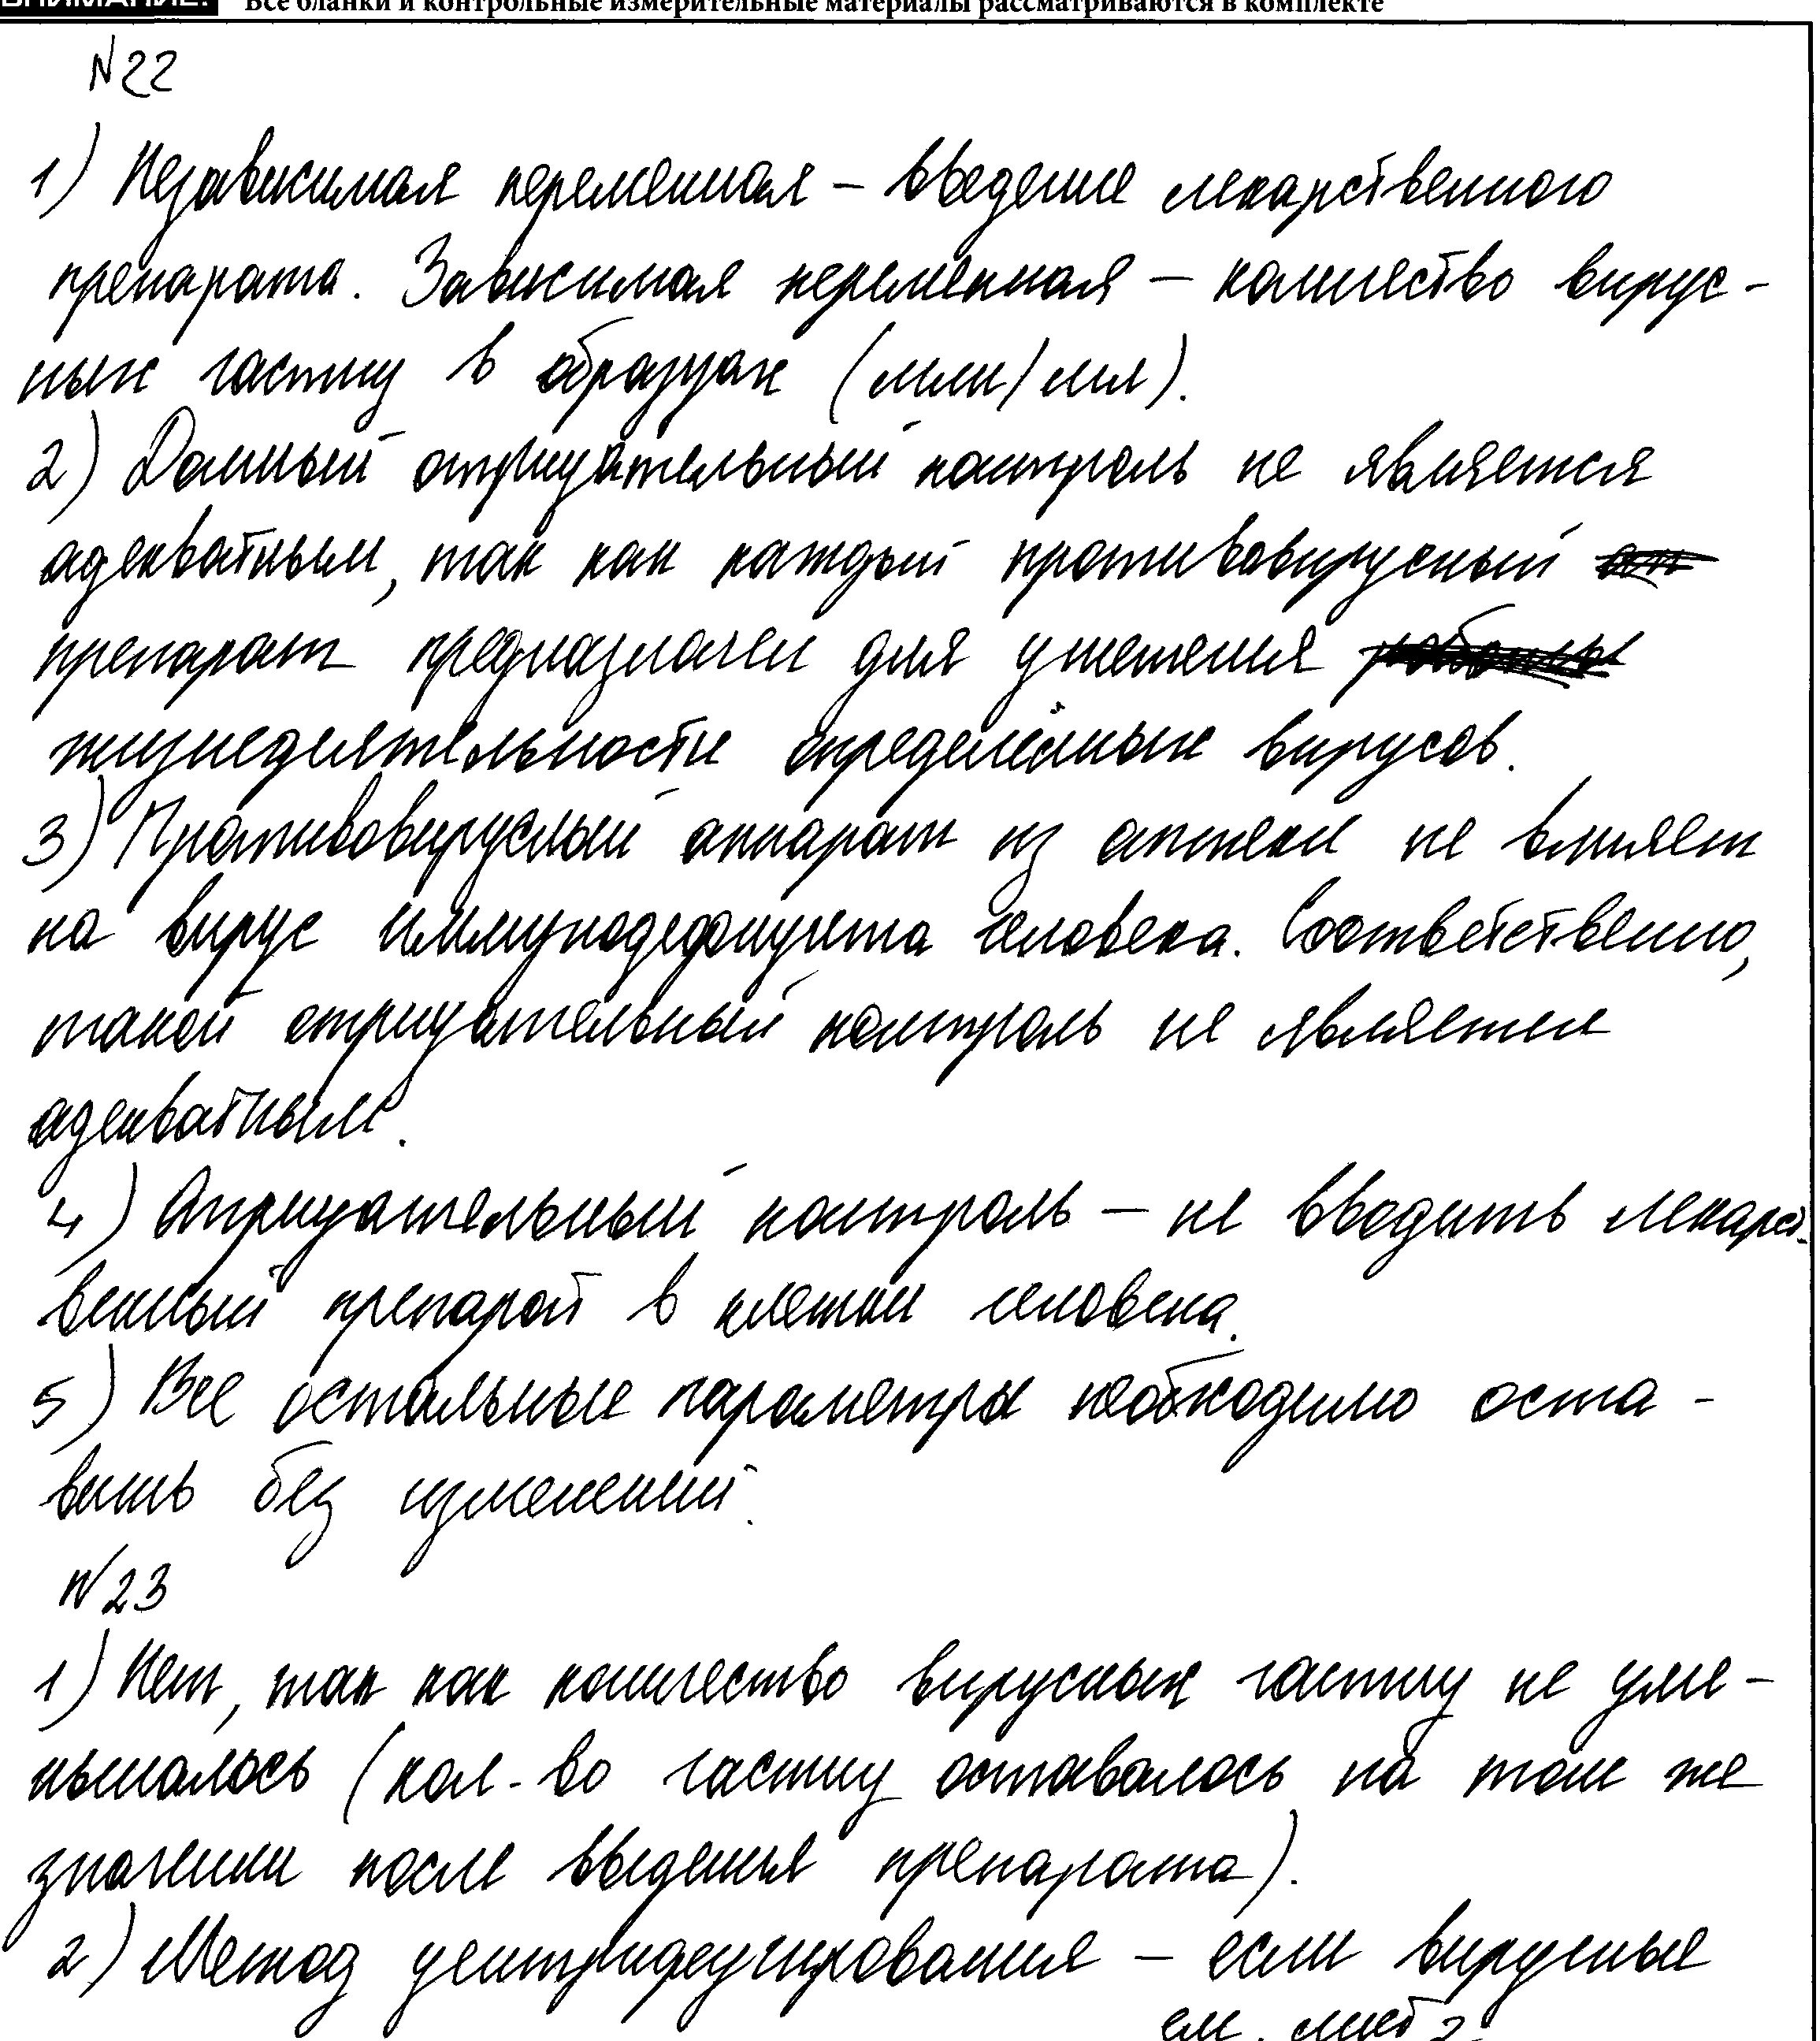 ВНИМАНИЕ! Все бланки и контрольные измерительные материалы рассматриваются в комплекте
N22
1) Независимая переменная – введение лекарственного
препарата. Зависимая переменная – количество вирус-
ных частиц в образцах (млн/мл).
2) Данный отрицательный контроль не является
адекватным, так как каждый противовирусный
препарат предназначен для угнетения
жизнедеятельности определённых вирусов.
3) Противовирусный аппарат из аптеки не влияет
на вирус иммунодефицита человека. Соответственно,
такой отрицательный контроль не является
адекватным.
4) Отрицательный контроль – не вводить лекарст-
венный препарат в клетки человека.
5) Все остальные параметры необходимо оста-
вить без изменений.
N23
1) Нет, так как количество вирусных частиц не уме-
ньшалось (кол-во частиц оставалось на том же
значении после введения препарата).
2) Метод центрифугирования – если вирусные
см. лист 2.